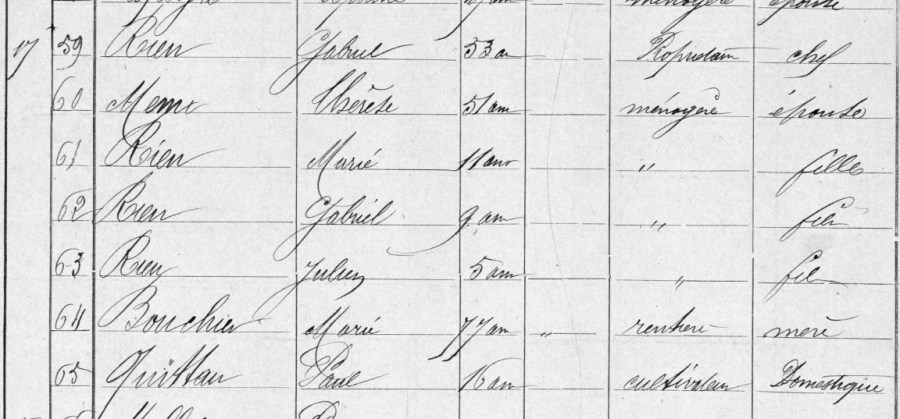 ménagère épouse
17 59 Rieu Gabriel 53 an Propriétaire chef
60 Meme Thérèse 51 an ménagère épouse
61 Rieu Marie 11 ans " fille
62 Rieu Gabriel 9 an " fils
63 Rieu Julien 5 an " fils
64 Bouchier Marie 77 an " rentière mère
65 Quittau Paul 16 an cultivateur Domestique